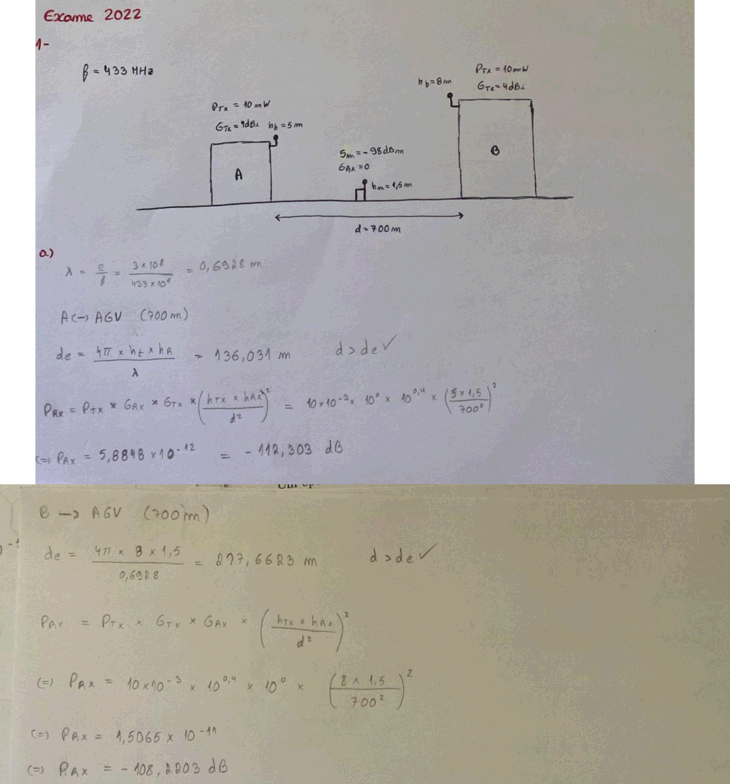 Exame 2022
1-
f = 433 MHz
PTX = 10 mW
GTX = 4dBi hb = 5 m
A
Sm = -98 dBm
GRX = 0
hm = 1,5 m
hb = 8m
PTX = 10 mW
GTX = 4dBi
B
d = 700 m
a)
λ = c/f = 3 × 10⁸ / 433 × 10⁶ = 0,6928 m
A (-> AGV (700 m)
de = 4π × ht × hR / λ = 136,031 m d > de ✓
PRX = PTX * GRX * GTX * (hTX × hRX / d²)² = 10×10⁻³ × 10⁰ × 10^0,4 × (5 × 1,5 / 700²)²
(=) PRX = 5,8848 × 10⁻¹² = - 112,303 dB
B -> AGV (700 m)
de = 4π × 8 × 1,5 / 0,6928 = 217,6623 m d > de ✓
PRX = PTX × GTX × GRX × (hTX × hRX / d²)²
(=) PRX = 10×10⁻³ × 10^0,4 × 10⁰ × (8 × 1,5 / 700²)²
(=) PRX = 1,5065 × 10⁻¹¹
(=) PRX = - 108,2203 dB